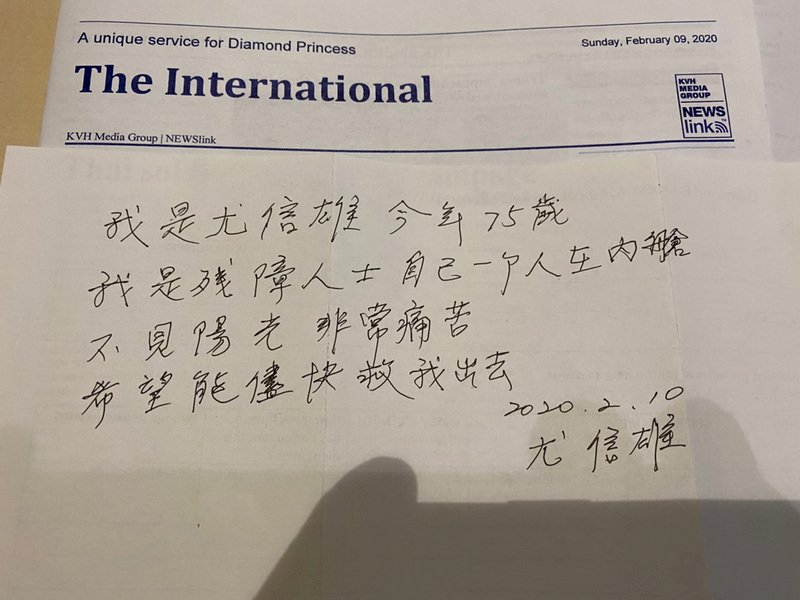 A unique service for Diamond Princess
Sunday, February 09, 2020
The International
KVH
MEDIA
GROUP
NEWS
link
KVH Media Group | NEWSlink
我是尤信雄 今年75歲
我是残障人士自己一个人在內艙
不見陽光 非常痛苦
希望能儘快救我出去
2020.2.10
尤信雄